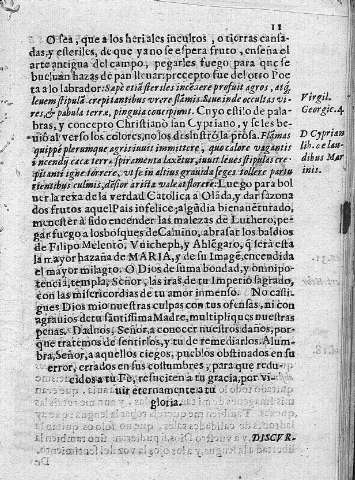 11
O sea, que a los heriales incultos, o tierras cansa-
das, y esteriles, de que ya no se espera fruto, enseña el
arte antigua del campo, pegarles fuego para que se
bueluan hazas de pan lleuar: precepto fue del otro Poeta
a lo labrador: Sæpe etiã steriles incẽdere profuit agros, atq;
leuem stipulã crepitantibus vrere flãmis. Siue inde occultas vi-
res, & pabula terræ, pinguia concipiunt. Cuyo estilo de pala-
bras, y concepto Christiano san Cypriano, y se les be-
uio al verso los colores, no los deslustró la prosa. Flãmas
quippè plerumque agris iuuit immittere, quo calore vagantis
incendij cæca terræ spiramenta laxẽtur, iuuat leues stipulas cre-
pitanti igne torrere, vt se in altius grauida seges tollere partu
rientibus culmis, desior arista vale at florere: Luego para bol
uer la rexa de la verdad Catolica a Olãda, y dar sazona
dos frutos aquel Pais infelice; algũ dia bienauẽturado,
menester à sido encender las malezas de Luthero, pe-
gar fuego a los bosques de Caluino, abrasar los baldios
de Filipo Melento, Vuicheph, y Ahlegaro, q̃ serà esta
la mayor hazaña de MARIA, y de su Imagẽ, encendida
el mayor milagro. O Dios de suma bondad, y omnipo-
tencia, templa, Señor, las iras de tu Imperio sagrado,
con las misericordias de tu amor inmenso. No casti-
gues Dios mio nuestras culpas con tus ofensas, ni con
agrauios de tu santissima Madre, multipliques nuestras
penas. Dadnos, Señor, a conocer nuestros daños, por-
que tratemos de sentirlos, y tu de remediarlos. Alum-
bra, Señor, a aquellos ciegos, pueblos obstinados en su
error, cerrados en sus costumbres, para que redu-
cidos a tu Fè, resuciten a tu gracia, por vi-
uir eternamente a tu
gloria.
DISCVR-
Virgil.
Georgic. 4.
D Cyprian
lib. ce lau-
dibus Mar
tiris.